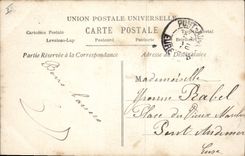 UNION POSTALE UNIVERSELLE
CARTE POSTALE
Cartolina Postale
Postcard
Postkarte
Levelezo-Lap
Partie Réservée à la Correspondance
Adresse du Destinataire
EURE
Bons baisers
Mademoiselle
Yvonne Rabel
Place du Vieux Marché
Pont Audemer
Eure